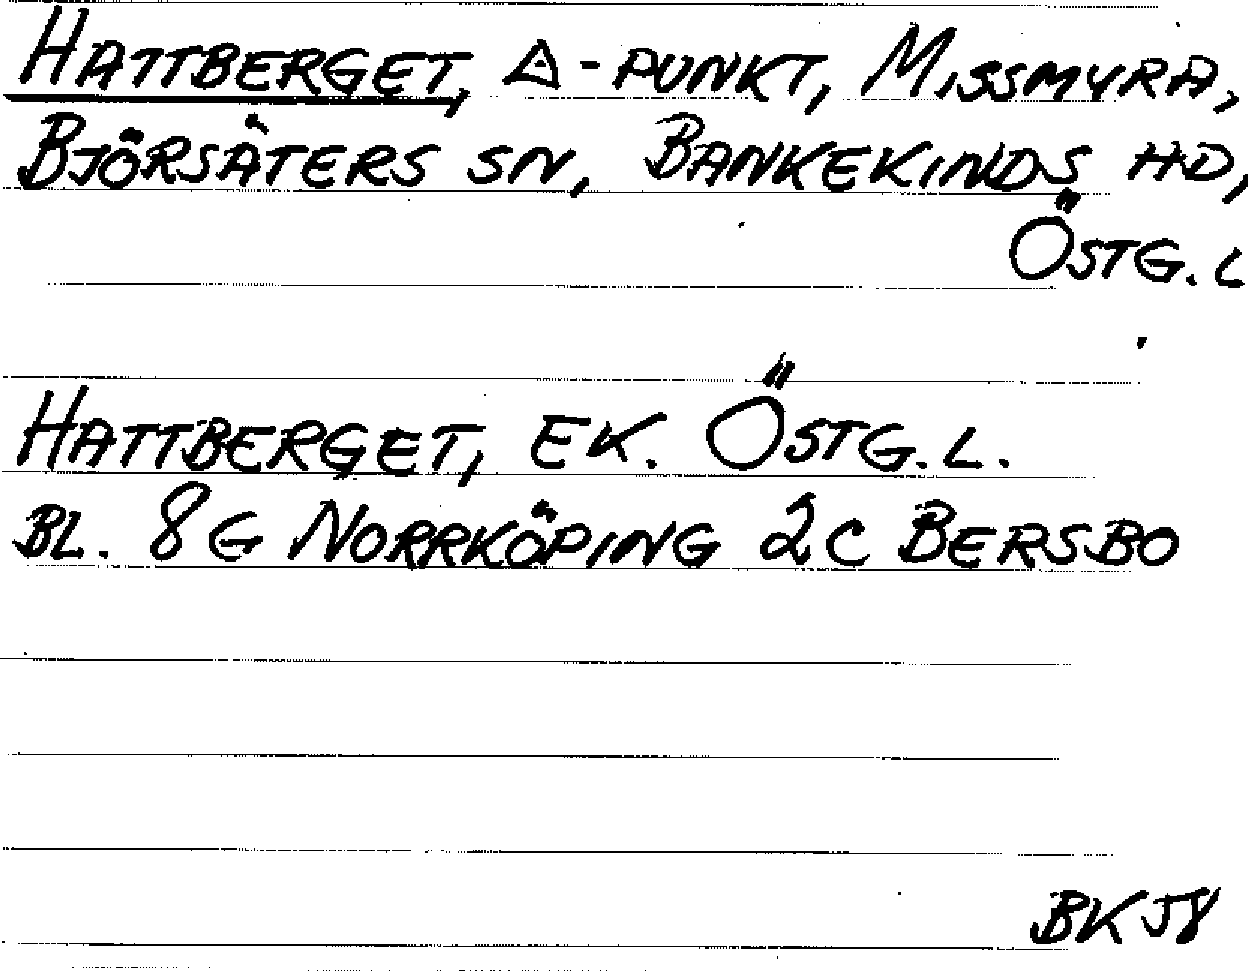 HATTBERGET, △-PUNKT, MISSMYRA,
BJÖRSÄTERS SN, BANKEKINDS HD,
ÖSTG. L
HATTBERGET, EK. ÖSTG. L.
BL. 8G NORRKÖPING 2C BERSBO
BK 58